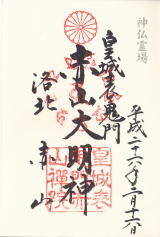 神仏霊場
皇城表鬼門
赤山大明神
洛北
赤山
平成二十六年二月十六日
皇城表